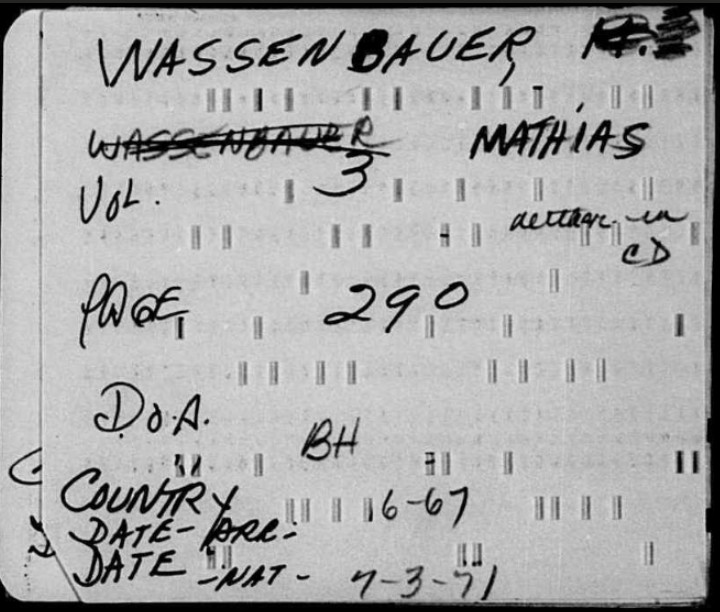 WASSENBAUER,
WASSENBAUER MATHIAS
VOL. 3
in CD
PAGE 290
DoA.
BH
COUNTRY
DATE-ARR- 6-67
DATE -NAT- 7-3-71